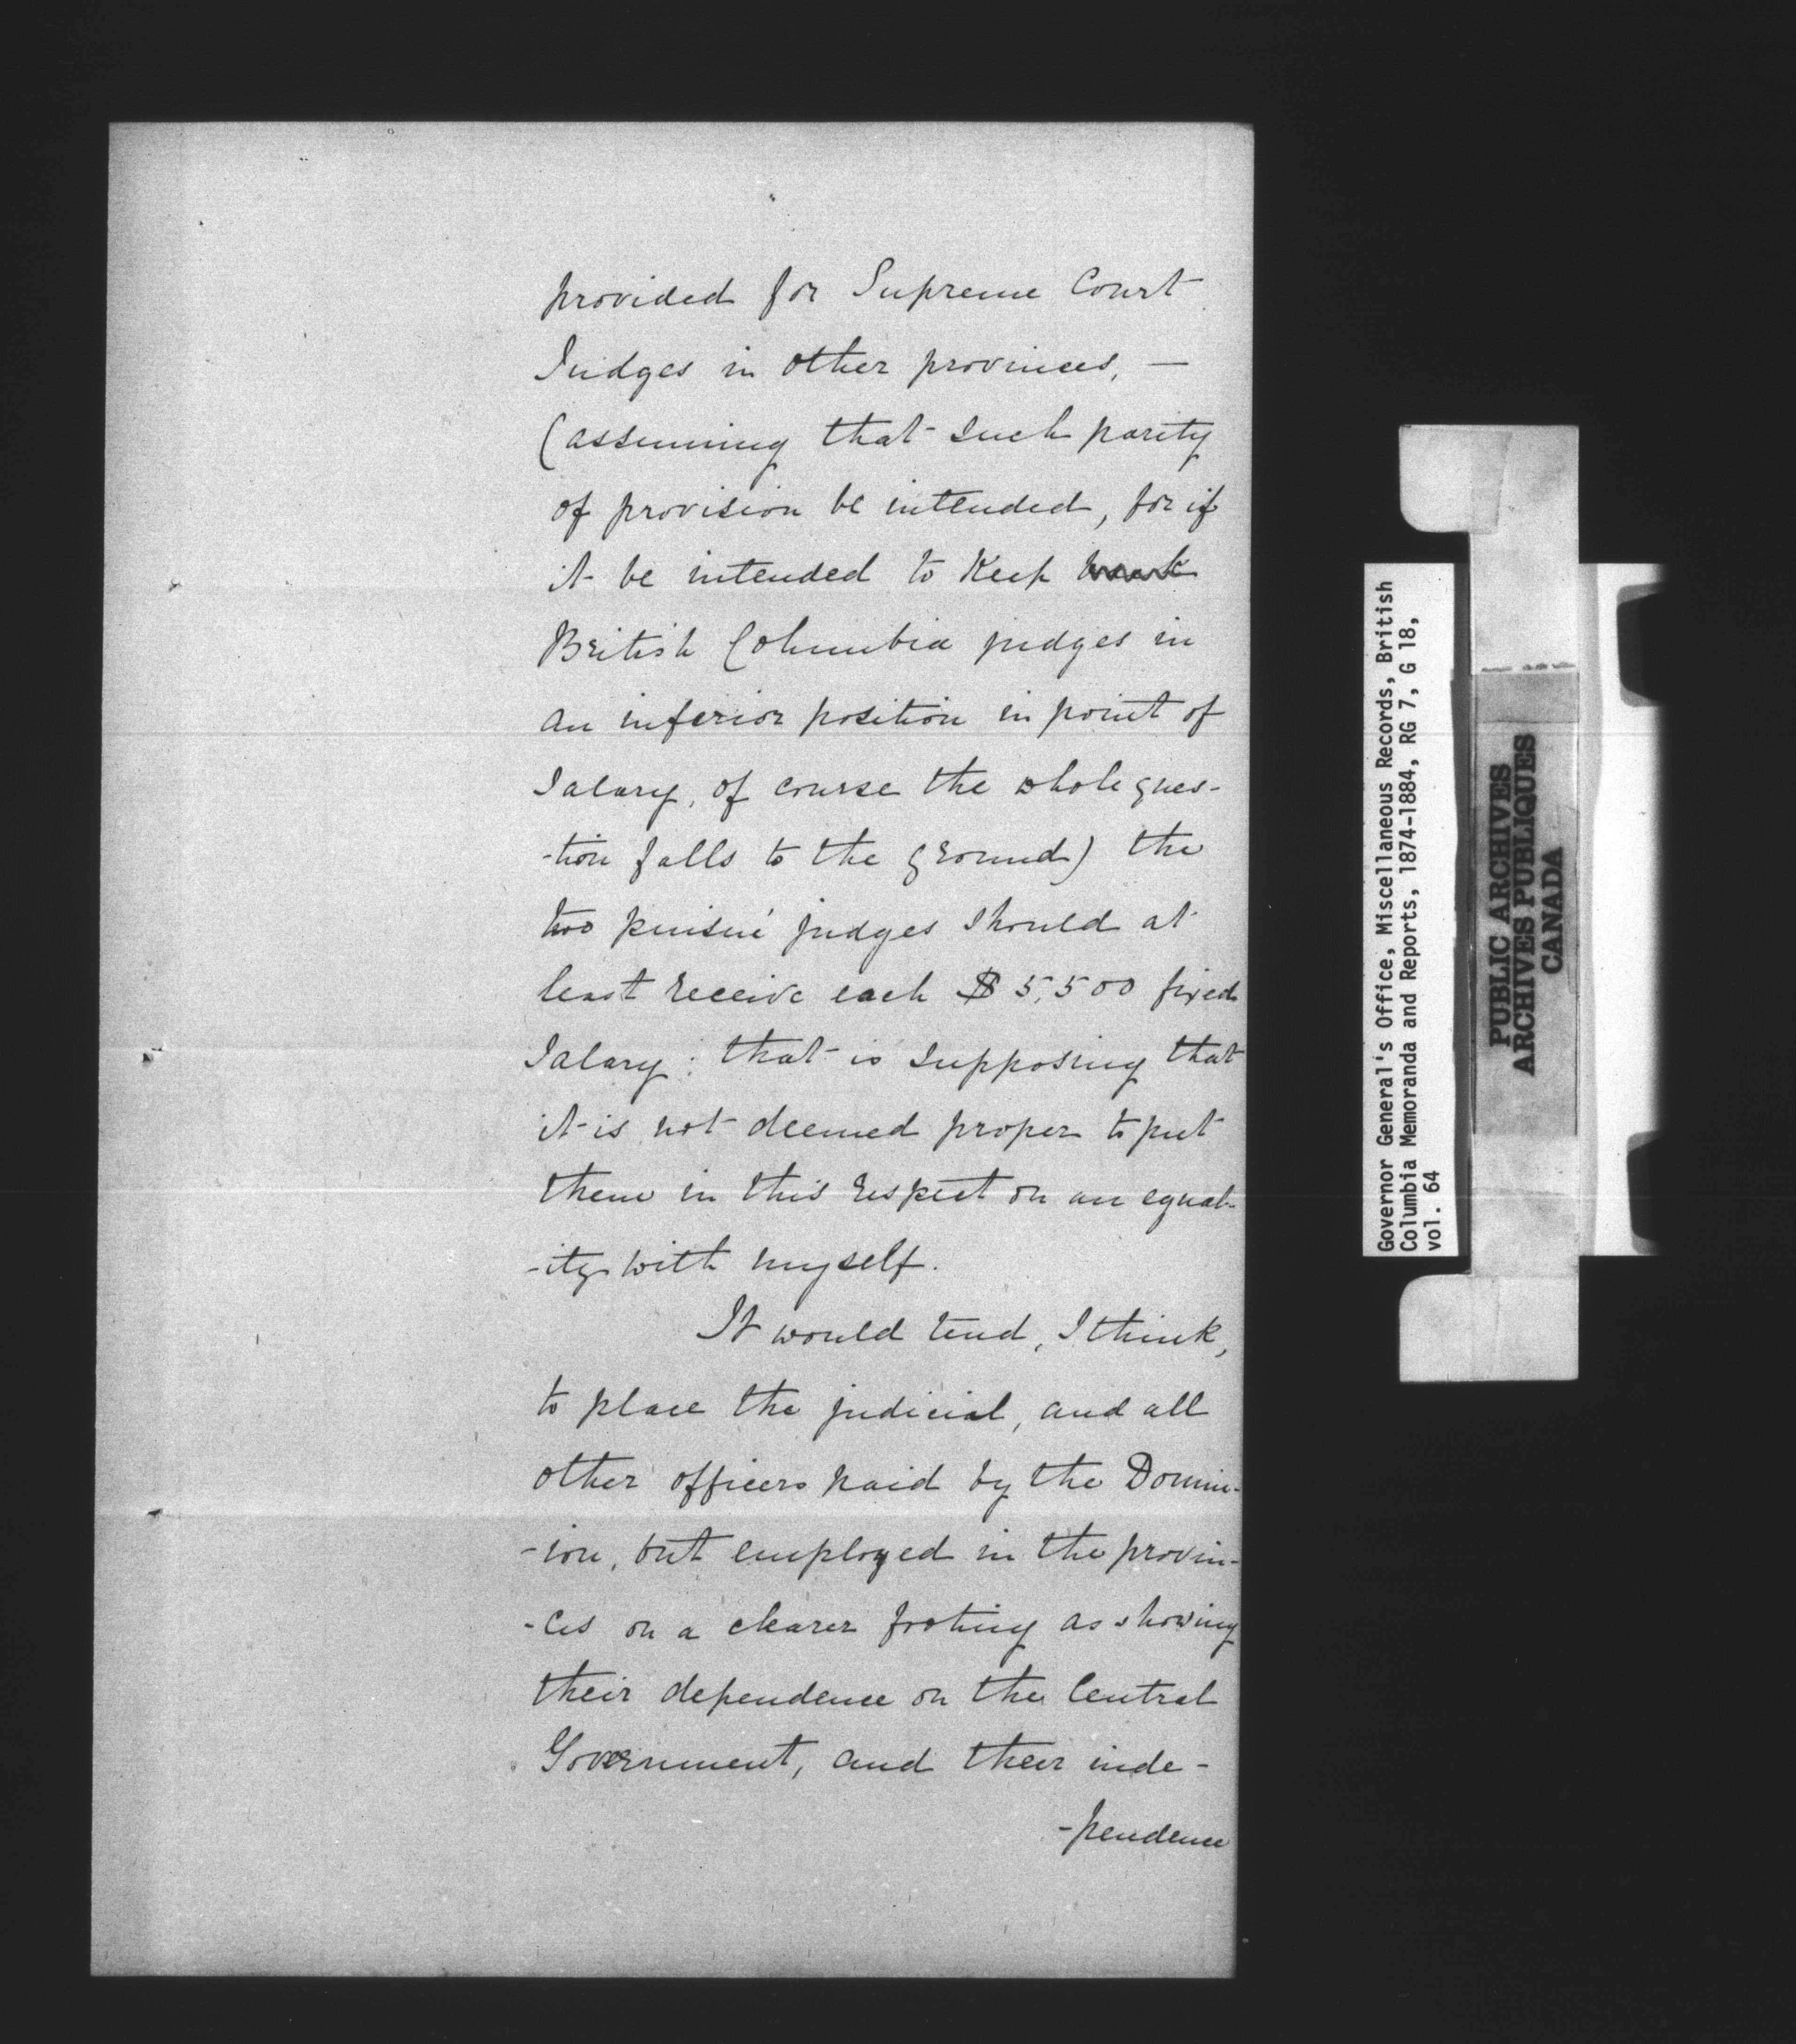 provided for Supreme Court
Judges in other provinces, —
(assuming that such parity
of provision be intended, for if
it be intended to keep
British Columbia judges in
an inferior position in point of
salary, of course the whole ques-
-tion falls to the ground) the
two puisné judges should at
least receive each $5,500 fixed
salary: that is supposing that
it is not deemed proper to put
them in this respect on an equal-
-ity with myself.
It would tend, I think,
to place the judicial, and all
other officers paid by the Domin-
-ion, but employed in the provin-
-ces on a clearer footing as showing
their dependence on the Central
Government, and their inde-
-pendence
Governor General's Office, Miscellaneous Records, British
Columbia Memoranda and Reports, 1874-1884, RG 7, G 18,
vol. 64
PUBLIC ARCHIVES
ARCHIVES PUBLIQUES
CANADA